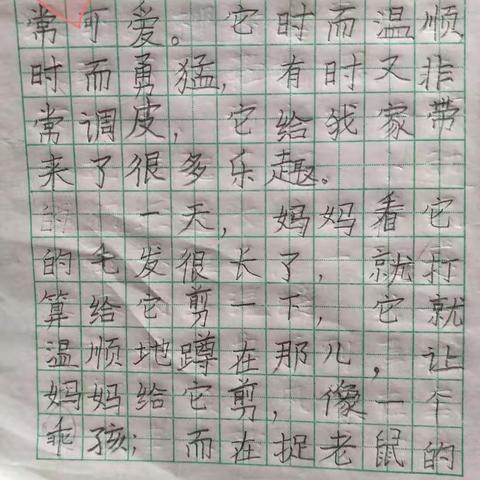 常可爱。它时而温顺
时而勇猛，有时又非
常调皮，它给我家带
来了很多乐趣。
的一天，妈妈看它
的毛发很长了，就打
算给它剪一下，它就
温顺地蹲在那儿，让
妈妈给它剪，像一个
乖孩；而在捉老鼠的